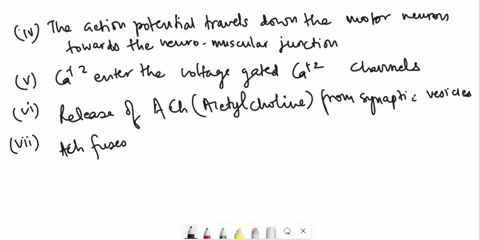 (iv) The action potential travels down the motor neuron
towards the neuro-muscular junction
(v) Ca+2 enter the voltage gated Ca+2 channels
(vi) Release of ACh (Acetylcholine) from synaptic vesicles
(vii) Ach fuses